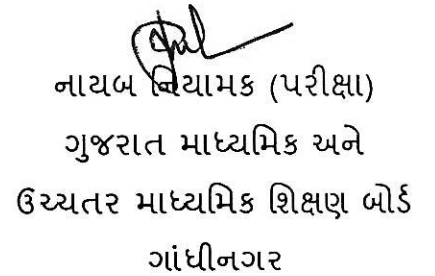 નાયબ નિયામક (પરીક્ષા)
ગુજરાત માધ્યમિક અને
ઉચ્ચતર માધ્યમિક શિક્ષણ બોર્ડ
ગાંધીનગર